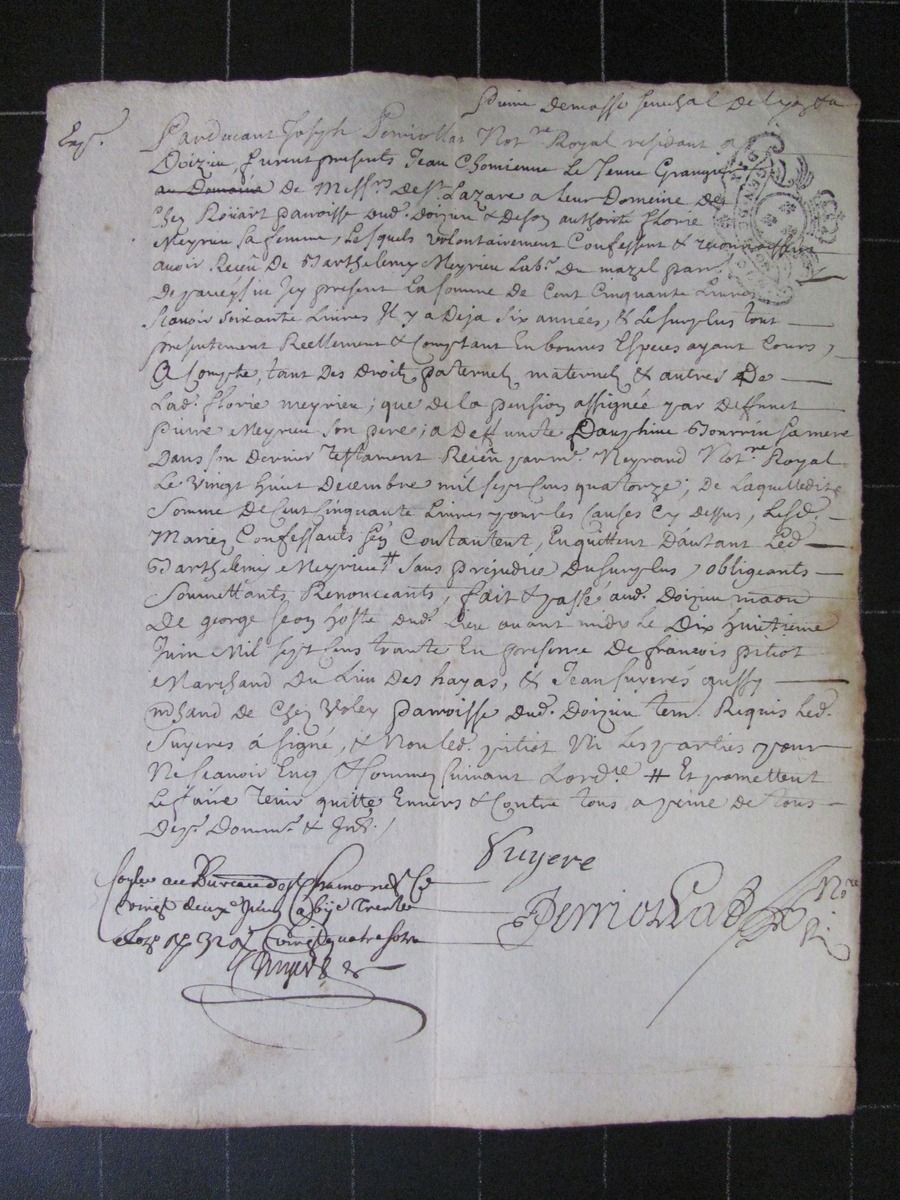 Exp.
Pardevant Joseph Perriollat Not.re Royal residant a
Doizieu, furent presents Jean Chomienne Le Jeune Granger
au Domaine de Mess.rs de S.t Lazare a Leur Domeine de
Chez Roüart parroisse dud. Doizieu & de son authorité florie
Meyrieu sa femme, Lesquels volontairement Confessent & reconnoissent
avoir Receu De Barthelemy Meyrieu Lab.r Du mazel parr.
De present La somme De Cent Cinquante Livres
scavoir soixante Livres Il y a Deja six années, & Le surplus tout
presentement Reellement & Comptant En bonnes Especes ayant Cours,
A Compte, tant Des Droits paternels maternels & autres De
Lad. florie meyrieu; que de la pension assignée par Deffunct
Pierre Meyrieu son pere; a Deffuncte Dauphine Bourrin sa mere
Dans son Dernier Testament Receu par m.e Neyrand Not.re Royal
Le vingt huit Decembre mil sept Cens quatorze; De Laquelle dite
somme De Cent Cinquante Livres pour les Causes Cy Dessus, Lesd.
Mariez Confessants s'en Contantent, En quittent D'autant Led.
Barthelemy Meyrieu # sans prejudice Du surplus, obligeants
soumettants Renonceants, fait & passé aud. Doizieu maon
De george seon hoste dud. Lieu avant midy Le Dix huitieme
Juin Mil sept Cens trante En presence De francois pitiot
Marchand Du Lieu Des hayas, & Jean suyeres aussy
mchand de Chez Voley parroisse dud. Doizieu tem. Requis Led.
Suyeres a signé, & Non led. pitiot Ni Les parties pour
Ne scavoir Enq. & sommez suivant L'ord.ce # Et promettent
Le faire Tenir quitte Envers & Contre tous a peine de tous
Dep. Domm. & Int. /
Suyere
Perriollat No.re R.
au Bureau de S.t Chamond Ce
vingt deux.e Juin Trente
vingt quatre sols